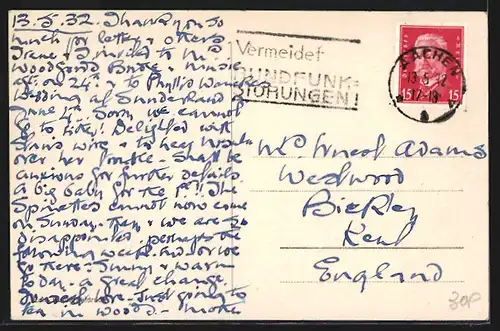 13.5.32. Thank you so
much for letter & others
Irene & I invited to Mrs
Woodford music
on 24th to Phyllis
Wedding at Sunderland
June 4th. Sorry we cannot
go to either! Delighted with
wire & to hear
over her shall be
anxious for further details.
A big baby for the !! The
cannot now come
on Sunday. They & we are so
disappointed. perhaps the
following week-end or we
go there. Sunny & warm
today - a great change.
love - just going to
tea in - Mother
Vermeidet
RUNDFUNK-
STÖRUNGEN!
AACHEN
13.5.32
17-18
15 15
Mrs Ernest Adams
Westwood
Bickley
Kent
England
30P